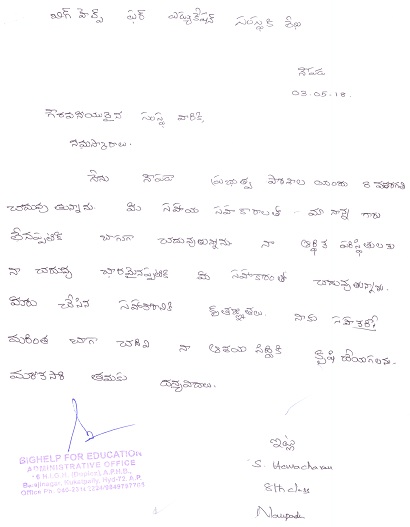 బిగ్ హెల్ప్ ఫర్ ఎడ్యుకేషన్ సంస్థకి లేఖ
నౌపడ
03-05-18.
గౌరవనీయులైన సంస్థ వారికి,
నమస్కారాలు.
నేను నౌపడా ప్రభుత్వ పాఠశాల యందు 8 వతరగతి
చదువు తున్నాను. మీ సహాయ సహకారాలతో - మా నాన్న గారు
లేనప్పటికి బాగా చదువుతున్నాను. నా ఆర్థిక పరిస్థితులకు
నా చదువు భారమైనప్పటికి మీ సహకారంతో చదువుతున్నాను.
మీరు చేసిన సహకారానికి కృతజ్ఞతలు. నాకు
మరింత బాగా చదివి నా ఆశయ సిద్ధికి కృషి చేయగలను.
మరొకసారి తమకు ధన్యవాదాలు.
BIGHELP FOR EDUCATION
ADMINISTRATIVE OFFICE
A.P.H.B.,
Kukatpally, Hyd-72. A.P.
Office Ph.
ఇట్లు
S.
8th class
Naupada